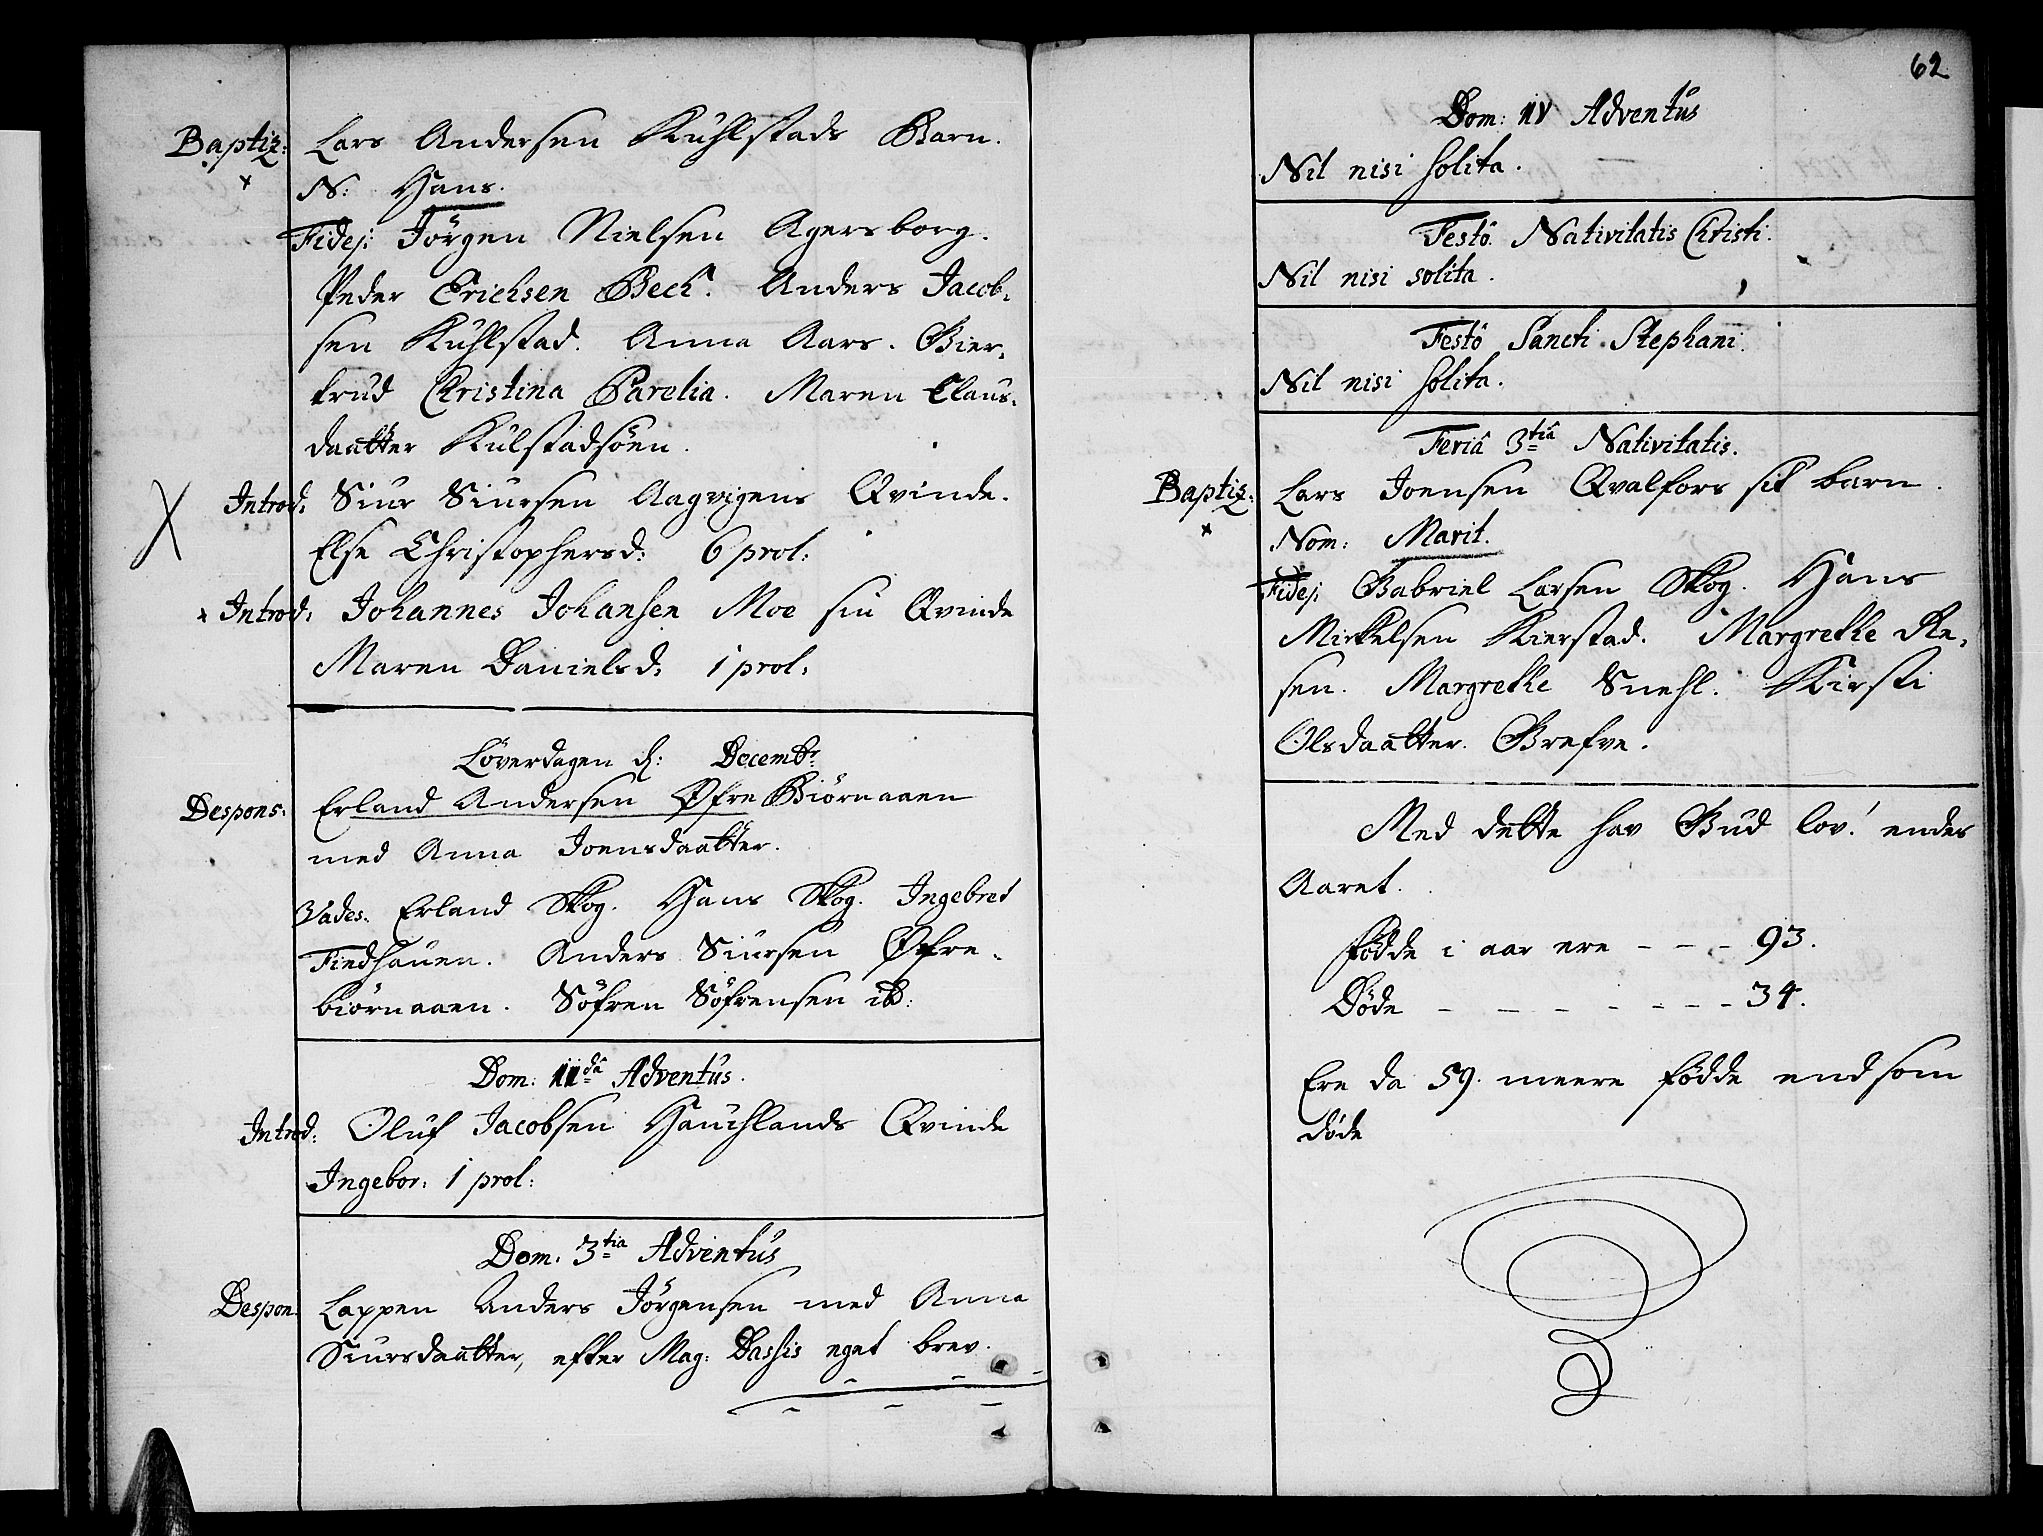 Baptiz: Lars Andersen Kuhlstads Barn.
N: Hans.
Fidej: Jörgen Nielsen Agersborg.
Peder Erichsen Bech. Anders Jacob-
sen Kuhlstad. Anna Aars. Gier-
trud Christina Parelia. Maren Claus-
daatter Kulstadsöen.
Introd: Siur Siursen Aagvigens Qvinde.
Else Christophersd: 6 prol:
Introd: Johannes Johansen Moe sin Qvinde
Maren Danielsd: 1 prol:
Løverdagen d: Decembr
Despons: Erland Andersen Øfre Biörnaaen
med Anna Joensdaatter.
Vades. Erland Skog. Hans Skog. Ingebret
Findhauen. Anders Siursen Øfre-
biörnaaen. Söfren Söfrensen ib:
Dom: II dâ Adventûs.
Introd: Oluf Jacobsen Hauchlands Qvinde
Ingebor: 1 prol:
Dom: 3tia Adventûs
Despon: Lappen Anders Jörgensen med Anna
Siursdaatter, efter Mag: Dassis eget brev.
62
Dom: IV Adventûs
Nil nisi solita.
Festô Nativitatis Christi.
Nil nisi solita.
Festô Sancti Stephani.
Nil nisi solita.
Feriâ 3tiâ Nativitatis.
Baptiz: Lars Joensen Qvalfors sit barn.
Nom: Marit.
Fidej: Gabriel Larsen Skog. Hans
Mikkelsen Kierstad. Margrethe Re-
sen. Margrethe Snehl. Kirsti
Olsdaatter. Grefve.
Med dette hav Gud lov! endes
Aaret.
Fødde i aar ere - - - 93.
Døde - - - - - - - 34.
Ere da 59. meere fødde end som
døde